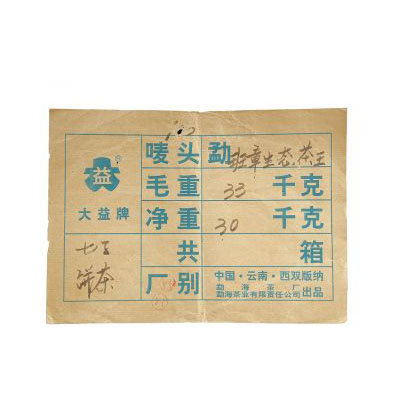 唛头 勐班章生态茶王
益®
毛重 33 千克
大益牌
净重 30 千克
七子
饼茶
共 箱
厂别
中国·云南·西双版纳
勐海茶厂
勐海茶业有限责任公司 出品